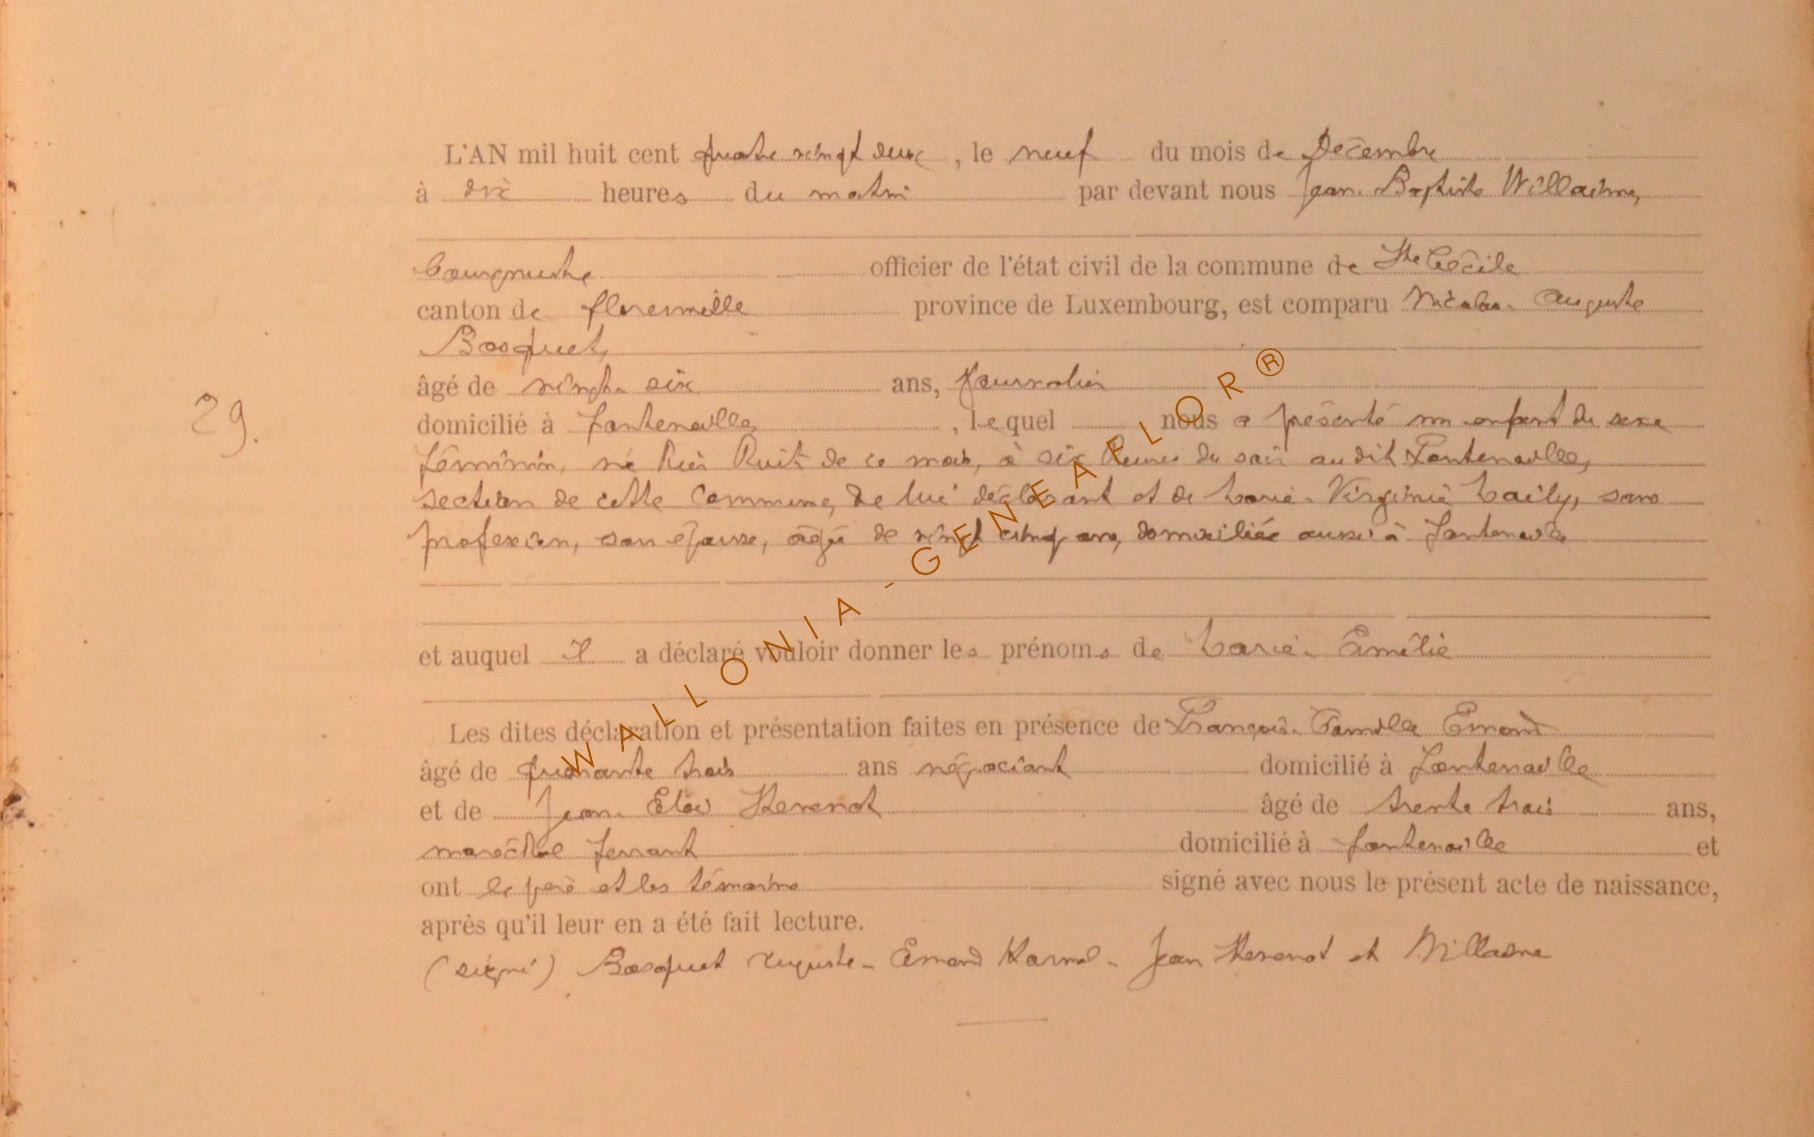 L'AN mil huit cent quatre vingt deux, le neuf du mois de Décembre
à dix heures du matin par devant nous Jean-Baptiste Willaime,
bourgmestre officier de l'état civil de la commune de Ste Cécile
canton de florenville province de Luxembourg, est comparu Nicolas-Auguste
Bosquet,
âgé de vingt-six ans, journalier
29.
domicilié à fontenoille, lequel nous a présenté un enfant du sexe
féminin, né hier huit de ce mois, à six heures du soir au dit Fontenoille,
section de cette commune, de lui déclarant et de Marie-Virginie Lailly, sans
profession, son épouse, âgée de vingt cinq ans, domiciliée aussi à fontenoille
et auquel il a déclaré vouloir donner les prénoms de Marie-Amélie
Les dites déclaration et présentation faites en présence de François-Camille Emond
âgé de quarante trois ans négociant domicilié à fontenoille
et de Jean-Eloi Herenot âgé de trente trois ans,
maréchal ferrant domicilié à fontenoille et
ont le père et les témoins signé avec nous le présent acte de naissance,
après qu'il leur en a été fait lecture.
(signé) Bosquet Auguste - Emond - Jean Herenot et Willaime
WALLONIA-GENEALOR®